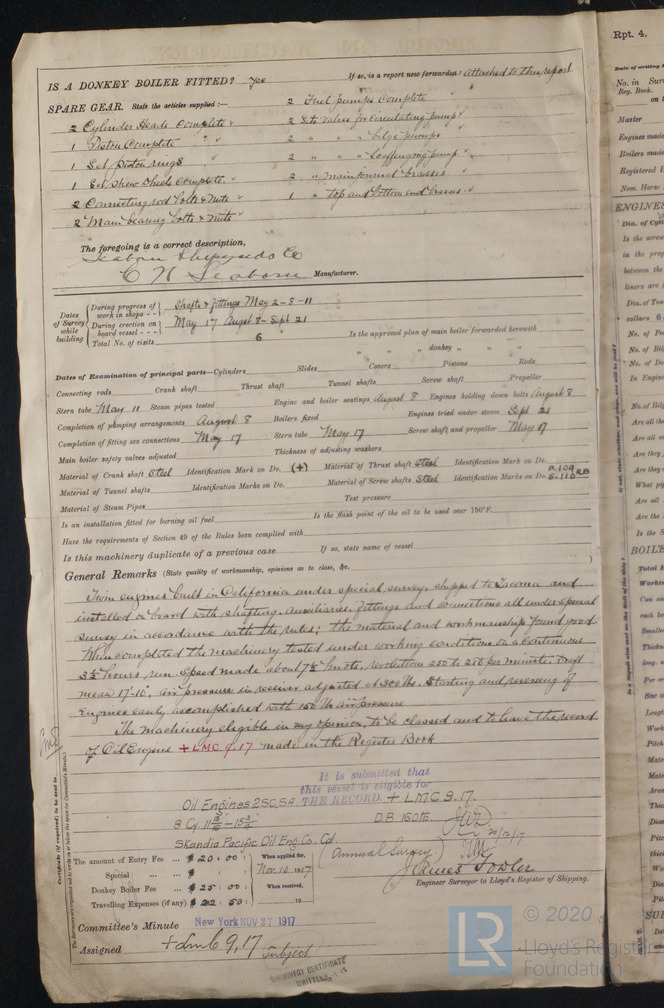 IS A DONKEY BOILER FITTED? Yes If so, is a report now forwarded? Attached to this report
SPARE GEAR. State the articles supplied :— 2 Fuel pumps Complete
2 Cylinder Heads Complete 2 Sets Valves for Circulating pump
1 Piston Complete 2 " " " bilge pumps
1 Set Piston rings 2 " " "
1 Set Skew Wheels Complete 2 " main journal brasses
2 Connecting rod bolts & Nuts 1 " top and bottom end brasses
2 Main bearing bolts & Nuts
The foregoing is a correct description,
Seaborn Shipyards Co
C N Seaborn Manufacturer.
Dates of Survey while building
During progress of work in shops - - Shafts & fittings May 2-8-11
During erection on board vessel - - - May 17 August 8 - Sept 21
Total No. of visits 6
Is the approved plan of main boiler forwarded herewith
" " " donkey " " "
Dates of Examination of principal parts—Cylinders Slides Covers Pistons Rods
Connecting rods Crank shaft Thrust shaft Tunnel shafts Screw shaft Propeller
Stern tube May 11 Steam pipes tested Engine and boiler seatings August 8 Engines holding down bolts August 8
Completion of pumping arrangements August 8 Boilers fixed Engines tried under steam Sept 21
Completion of fitting sea connections May 17 Stern tube May 17 Screw shaft and propeller May 17
Main boiler safety valves adjusted Thickness of adjusting washers
Material of Crank shaft Steel Identification Mark on Do. (+) Material of Thrust shaft Steel Identification Mark on Do.
Material of Tunnel shafts Identification Marks on Do. Material of Screw shafts Steel Identification Marks on Do. P-109 S-110 RB
Material of Steam Pipes Test pressure
Is an installation fitted for burning oil fuel Is the flash point of the oil to be used over 150°F.
Have the requirements of Section 49 of the Rules been complied with
Is this machinery duplicate of a previous case If so, state name of vessel
General Remarks (State quality of workmanship, opinions as to class, &c.
Twin engines built in California under special survey. Shipped to Tacoma and
installed on board with shafting. Auxiliaries, fittings and connections all under special
survey in accordance with the rules; the material and workmanship found good
When completed the machinery tested under working condition on a continuous
3½ hours run. Speed made about 7½ knots, revolutions 250 to 280 per minute. Draft
mean 17-10". Air pressure in receiver adjusted at 300 lbs. Starting and reversing of
Engines easily accomplished with 150 lbs air pressure
The machinery eligible in my opinion, to be classed and to have the record
of Oil Engine + LMC 9.17 made in the Register Book
It is submitted that
this vessel is eligible for
THE RECORD. + LMC 9.17.
Oil Engines 2SC.SA.
D.B. 160 lb.
20/12/17
Skandia Pacific Oil Eng. Co. Cal.
(Annual Survey)
The amount of Entry Fee ... $ 20 : 00 : When applied for,
Special ... $ : : Nov. 10. 1917
Donkey Boiler Fee ... $ 25 : 00 : When received,
Travelling Expenses (if any) $ 22 : 50 : 19
James Fowler
Engineer Surveyor to Lloyd's Register of Shipping.
Committee's Minute New York NOV 27 1917
Assigned + Lmc 9,17 Subject
MACHINERY CERTIFICATE
WRITTEN
Certificate (if required) to be sent to
Rpt. 4.
Date of writing
No. in Sur
Reg. Book.
on t
Master
Engines made
Boilers made
Registered
Nom. Horse
ENGINES
Dia. of Cyl
Is the screw
in the prop
between the
liners are
Dia. of Tun
collars 6
No. of Fee
No. of Bil
No. of Do
In Engine
© 2020
LR
Lloyd's Register
Foundation